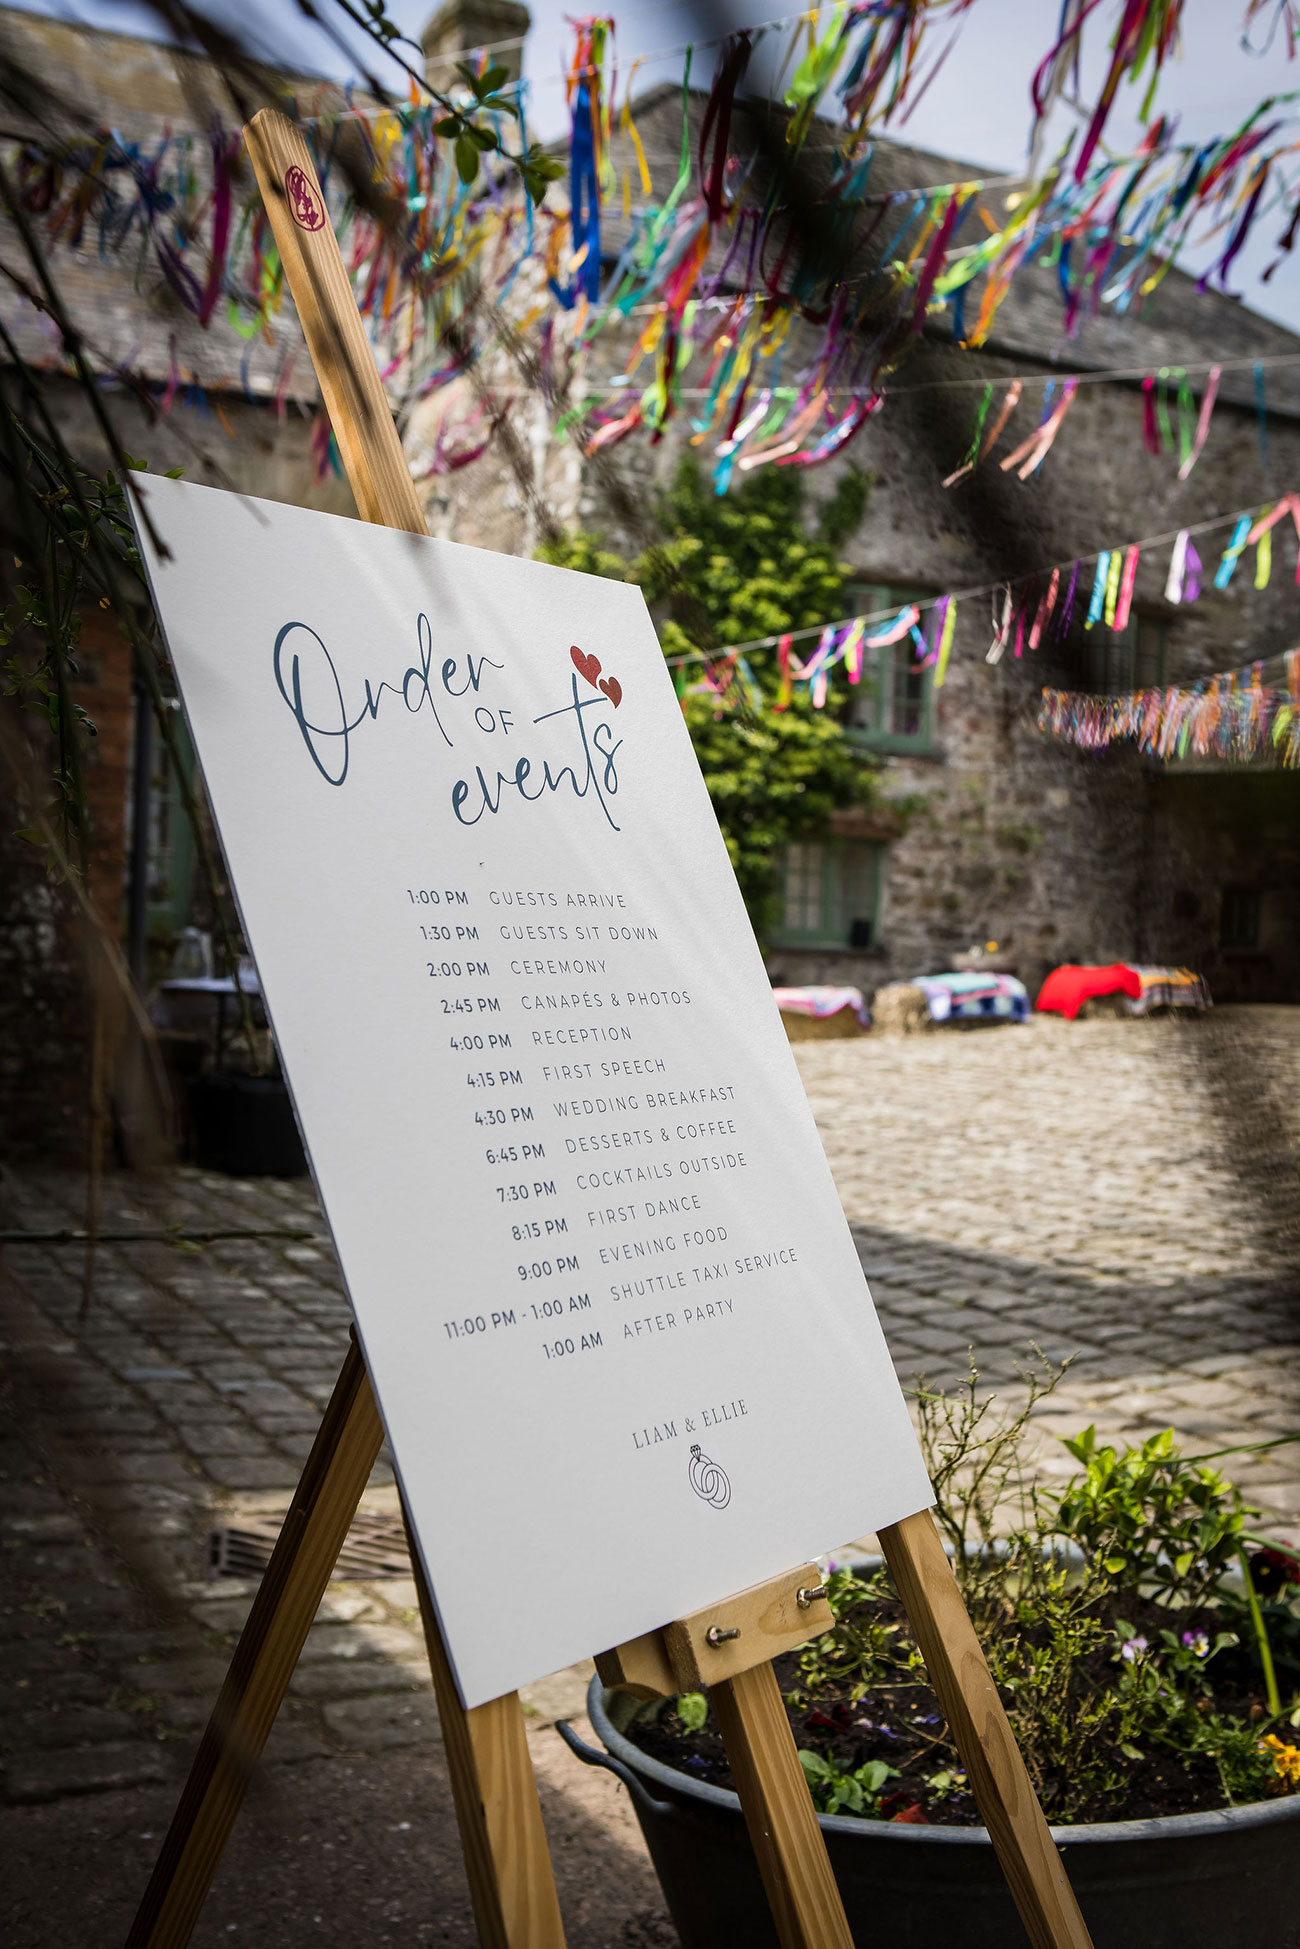 Order
OF
events
1:00 PM GUESTS ARRIVE
1:30 PM GUESTS SIT DOWN
2:00 PM CEREMONY
2:45 PM CANAPÉS & PHOTOS
4:00 PM RECEPTION
4:15 PM FIRST SPEECH
4:30 PM WEDDING BREAKFAST
6:45 PM DESSERTS & COFFEE
7:30 PM COCKTAILS OUTSIDE
8:15 PM FIRST DANCE
9:00 PM EVENING FOOD
11:00 PM - 1:00 AM SHUTTLE TAXI SERVICE
1:00 AM AFTER PARTY
LIAM & ELLIE